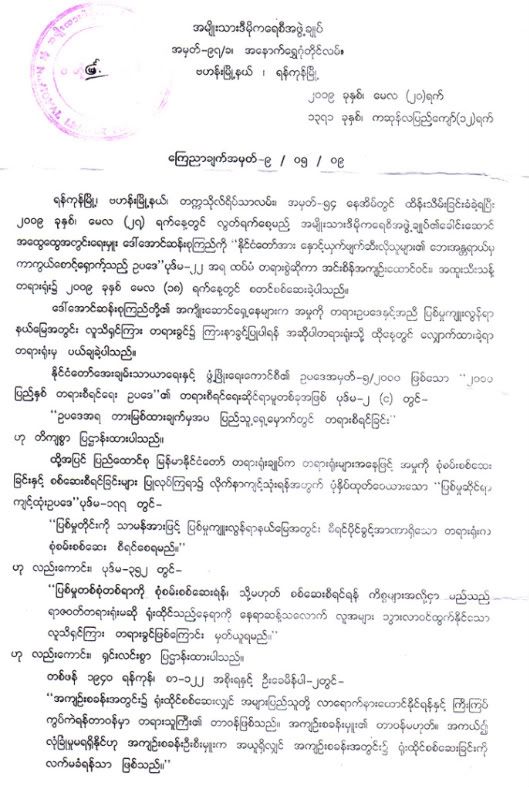 အမျိုးသားဒီမိုကရေစီအဖွဲ့ချုပ်
အမှတ်-၉၇/ခ၊ အနောက်ရွှေဂုံတိုင်လမ်း၊
ဗဟန်းမြို့နယ် ၊ ရန်ကုန်မြို့
၂၀၀၉ ခုနှစ်၊ မေလ (၂၀)ရက်
၁၃၇၁ ခုနှစ်၊ ကဆုန်လပြည့်ကျော်(၁၂)ရက်
ကြေညာချက်အမှတ်-၉ / ၀၅ / ၀၉
ရန်ကုန်မြို့၊ ဗဟန်းမြို့နယ်၊ တက္ကသိုလ်ရိပ်သာလမ်း၊ အမှတ်-၅၄ နေအိမ်တွင် ထိန်းသိမ်းခြင်းခံခဲ့ရပြီး
၂၀၀၉ ခုနှစ်၊ မေလ (၂၇) ရက်နေ့တွင် လွတ်ရက်စေ့မည့် အမျိုးသားဒီမိုကရေစီအဖွဲ့ချုပ်၏ခေါင်းဆောင်
အထွေထွေအတွင်းရေးမှူး ဒေါ်အောင်ဆန်းစုကြည်ကို “နိုင်ငံတော်အား နှောင့်ယှက်ဖျက်ဆီးလိုသူများ၏ ဘေးအန္တရာယ်မှ
ကာကွယ်စောင့်ရှောက်သည့် ဥပဒေ” ပုဒ်မ-၂၂ အရ ထပ်မံ တရားစွဲဆိုကာ အင်းစိန်အကျဉ်းထောင်ဝင်း၊ အထူးသီးသန့်
တရားရုံး၌ ၂၀၀၉ ခုနှစ် မေလ (၁၈) ရက်နေ့တွင် စတင်စစ်ဆေးခဲ့ပါသည်။
ဒေါ်အောင်ဆန်းစုကြည်တို့၏ အကျိုးဆောင်ရှေ့နေများက အမှုကို တရားဥပဒေနှင့်အညီ ပြစ်မှုကျူးလွန်ရာ
နယ်မြေအတွင်း လူသိရှင်ကြား တရားခွင်၌ ကြားနာခွင့်ပြုပါရန် အဆိုပါတရားရုံးသို့ ထိုနေ့တွင် လျှောက်ထားခဲ့ရာ
တရားရုံးမှ ပယ်ချခဲ့ပါသည်။
နိုင်ငံတော်အေးချမ်းသာယာရေးနှင့် ဖွံ့ဖြိုးရေးကောင်စီ၏ ဥပဒေအမှတ်-၅/၂၀၀၀ ဖြစ်သော “၂၀၀၀
ပြည့်နှစ် တရားစီရင်ရေး ဥပဒေ”၏ တရားစီရင်ရေးဆိုင်ရာမူတစ်ခုအဖြစ် ပုဒ်မ-၂ (င) တွင်-
“ဥပဒေအရ တားမြစ်ထားချက်မှအပ ပြည်သူ့ရှေ့မှောက်တွင် တရားစီရင်ခြင်း”
ဟု တိကျစွာ ပြဋ္ဌာန်းထားပါသည်။
ထို့အပြင် ပြည်ထောင်စု မြန်မာနိုင်ငံတော် တရားရုံးချုပ်က တရားရုံးများအနေဖြင့် အမှုကို စုံစမ်းစစ်ဆေး
ခြင်းနှင့် စစ်ဆေးစီရင်ခြင်းများ ပြုလုပ်ကြရာ၌ လိုက်နာကျင့်သုံးရန်အတွက် ပုံနှိပ်ထုတ်ဝေထားသော “ပြစ်မှုဆိုင်ရာ
ကျင့်ထုံးဥပဒေ”ပုဒ်မ-၁၇၇ တွင်-
“ပြစ်မှုတိုင်းကို သာမန်အားဖြင့် ပြစ်မှုကျူးလွန်ရာနယ်မြေအတွင်း စီရင်ပိုင်ခွင့်အာဏာရှိသော တရားရုံးက
စုံစမ်းစစ်ဆေး စီရင်စေရမည်။”
ဟု လည်းကောင်း၊ ပုဒ်မ-၃၅၂ တွင်-
“ပြစ်မှုတစ်စုံတစ်ရာကို စုံစမ်းစစ်ဆေးရန်၊ သို့မဟုတ် စစ်ဆေးစီရင်ရန် ကိစ္စများအလို့ငှာ မည်သည့်
ရာဇဝတ်တရားရုံးမဆို ရုံးထိုင်သည့်နေရာကို နေရာဆန့်သလောက် လူအများ သွားလာဝင်ထွက်နိုင်သော
လူသိရှင်ကြား တရားခွင်ဖြစ်ကြောင်း မှတ်ယူရမည်။”
ဟု လည်းကောင်း၊ ရှင်းလင်းစွာ ပြဋ္ဌာန်းထားပါသည်။
တစ်ဖန် ၁၉၄၀ ရန်ကုန်၊ စာ-၁၂၂ အစိုးရနှင့် ဦးခေမိန်ပါ-၂တွင်-
“အကျဉ်းစခန်းအတွင်း၌ ရုံးထိုင်စစ်ဆေးလျှင် အများပြည်သူတို့ လာရောက်နားထောင်နိုင်ရန်နှင့် ကြီးကြပ်
ကွပ်ကဲရန်တာဝန်မှာ တရားသူကြီး၏ တာဝန်ဖြစ်သည်။ အကျဉ်းစခန်းမှူး၏ တာဝန်မဟုတ်။ အကယ်၍
လုံခြုံမှုမရရှိနိုင်ဟု အကျဉ်းစခန်းဦးစီးမှူးက အယူရှိလျှင် အကျဉ်းစခန်းအတွင်း၌ ရုံးထိုင်စစ်ဆေးခြင်းကို
လက်မခံရန်သာ ဖြစ်သည်။”